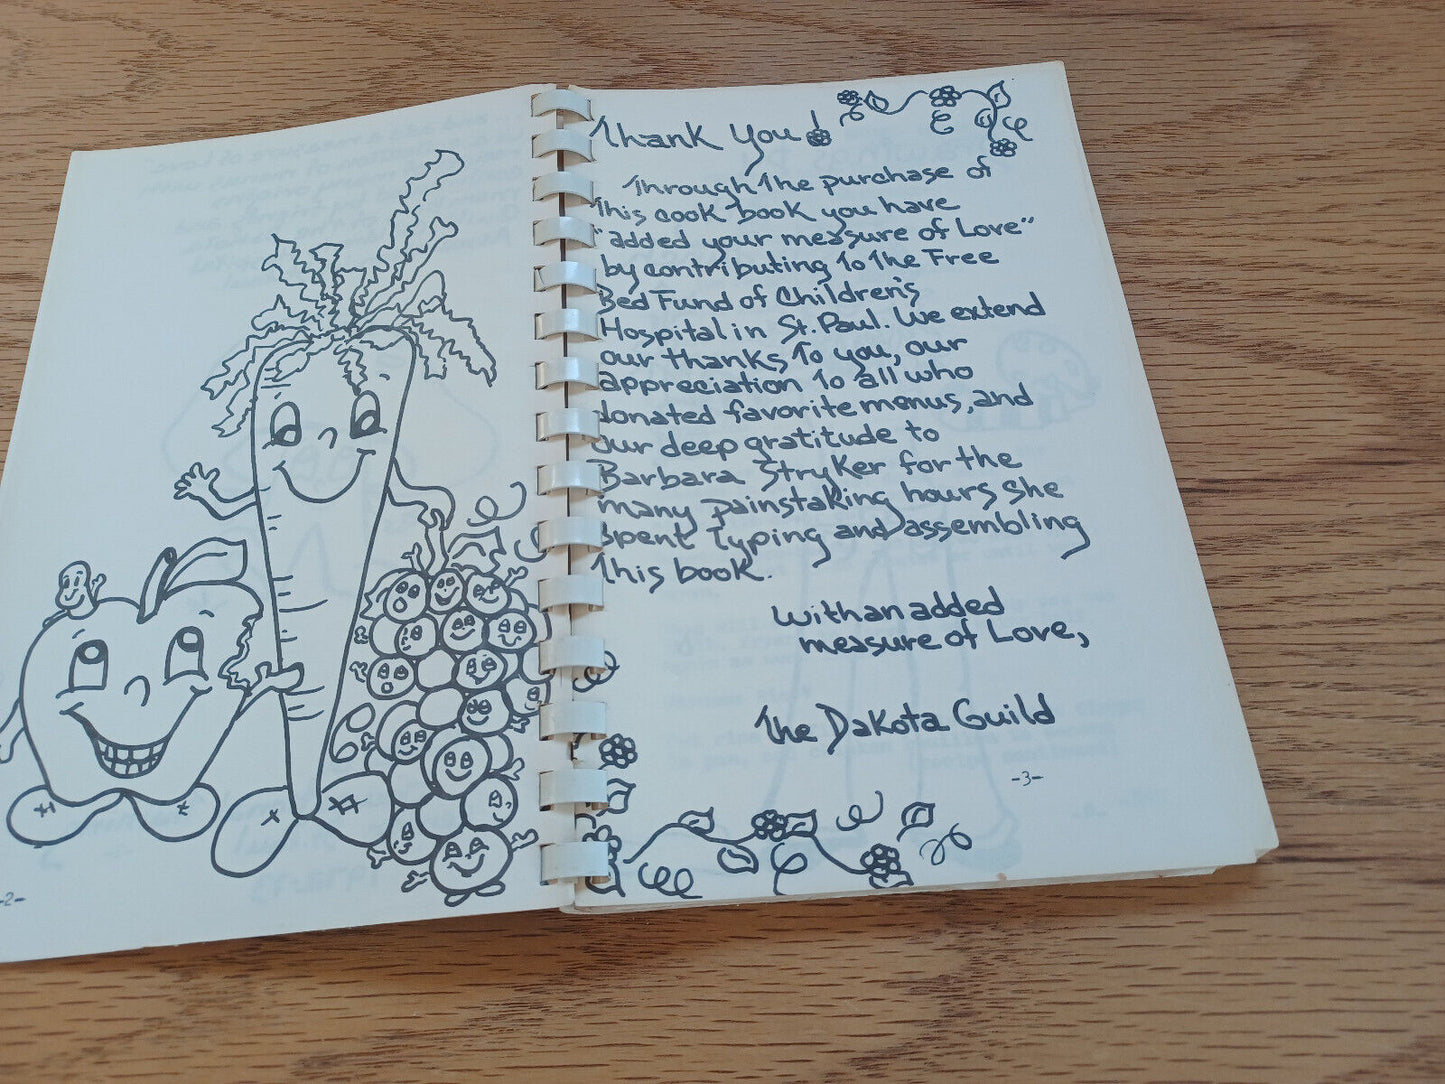 -2-
Thank You!
Through the purchase of
this cook book you have
"added your measure of Love"
by contributing to the Free
Bed Fund of Children's
Hospital in St. Paul. We extend
our thanks to you, our
appreciation to all who
donated favorite menus, and
our deep gratitude to
Barbara Stryker for the
many painstaking hours she
spent typing and assembling
this book.
with an added
measure of Love,
The Dakota Guild
-3-